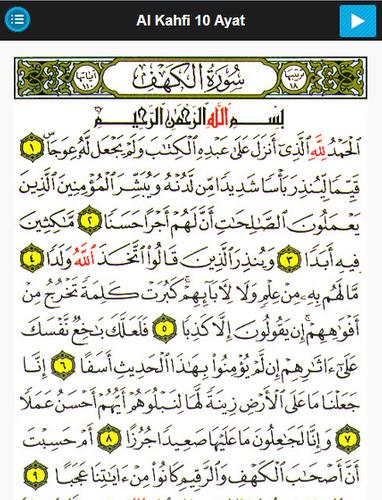 Al Kahfi 10 Ayat
ترتيبها ١٨ سورة الكهف آياتها ١١٠
بسم الله الرحمن الرحيم
الحمد لله الذي أنزل على عبده الكتاب ولم يجعل له عوجا ١
قيما لينذر بأسا شديدا من لدنه ويبشر المؤمنين الذين
يعملون الصالحات أن لهم أجرا حسنا ٢ ماكثين
فيه أبدا ٣ وينذر الذين قالوا اتخذ الله ولدا ٤
ما لهم به من علم ولا لآبائهم كبرت كلمة تخرج من
أفواههم إن يقولون إلا كذبا ٥ فلعلك باخع نفسك
على ءاثارهم إن لم يؤمنوا بهذا الحديث أسفا ٦ إنا
جعلنا ما على الأرض زينة لها لنبلوهم أيهم أحسن عملا
٧ وإنا لجاعلون ما عليها صعيدا جرزا ٨ أم حسبت
أن أصحاب الكهف والرقيم كانوا من ءاياتنا عجبا ٩